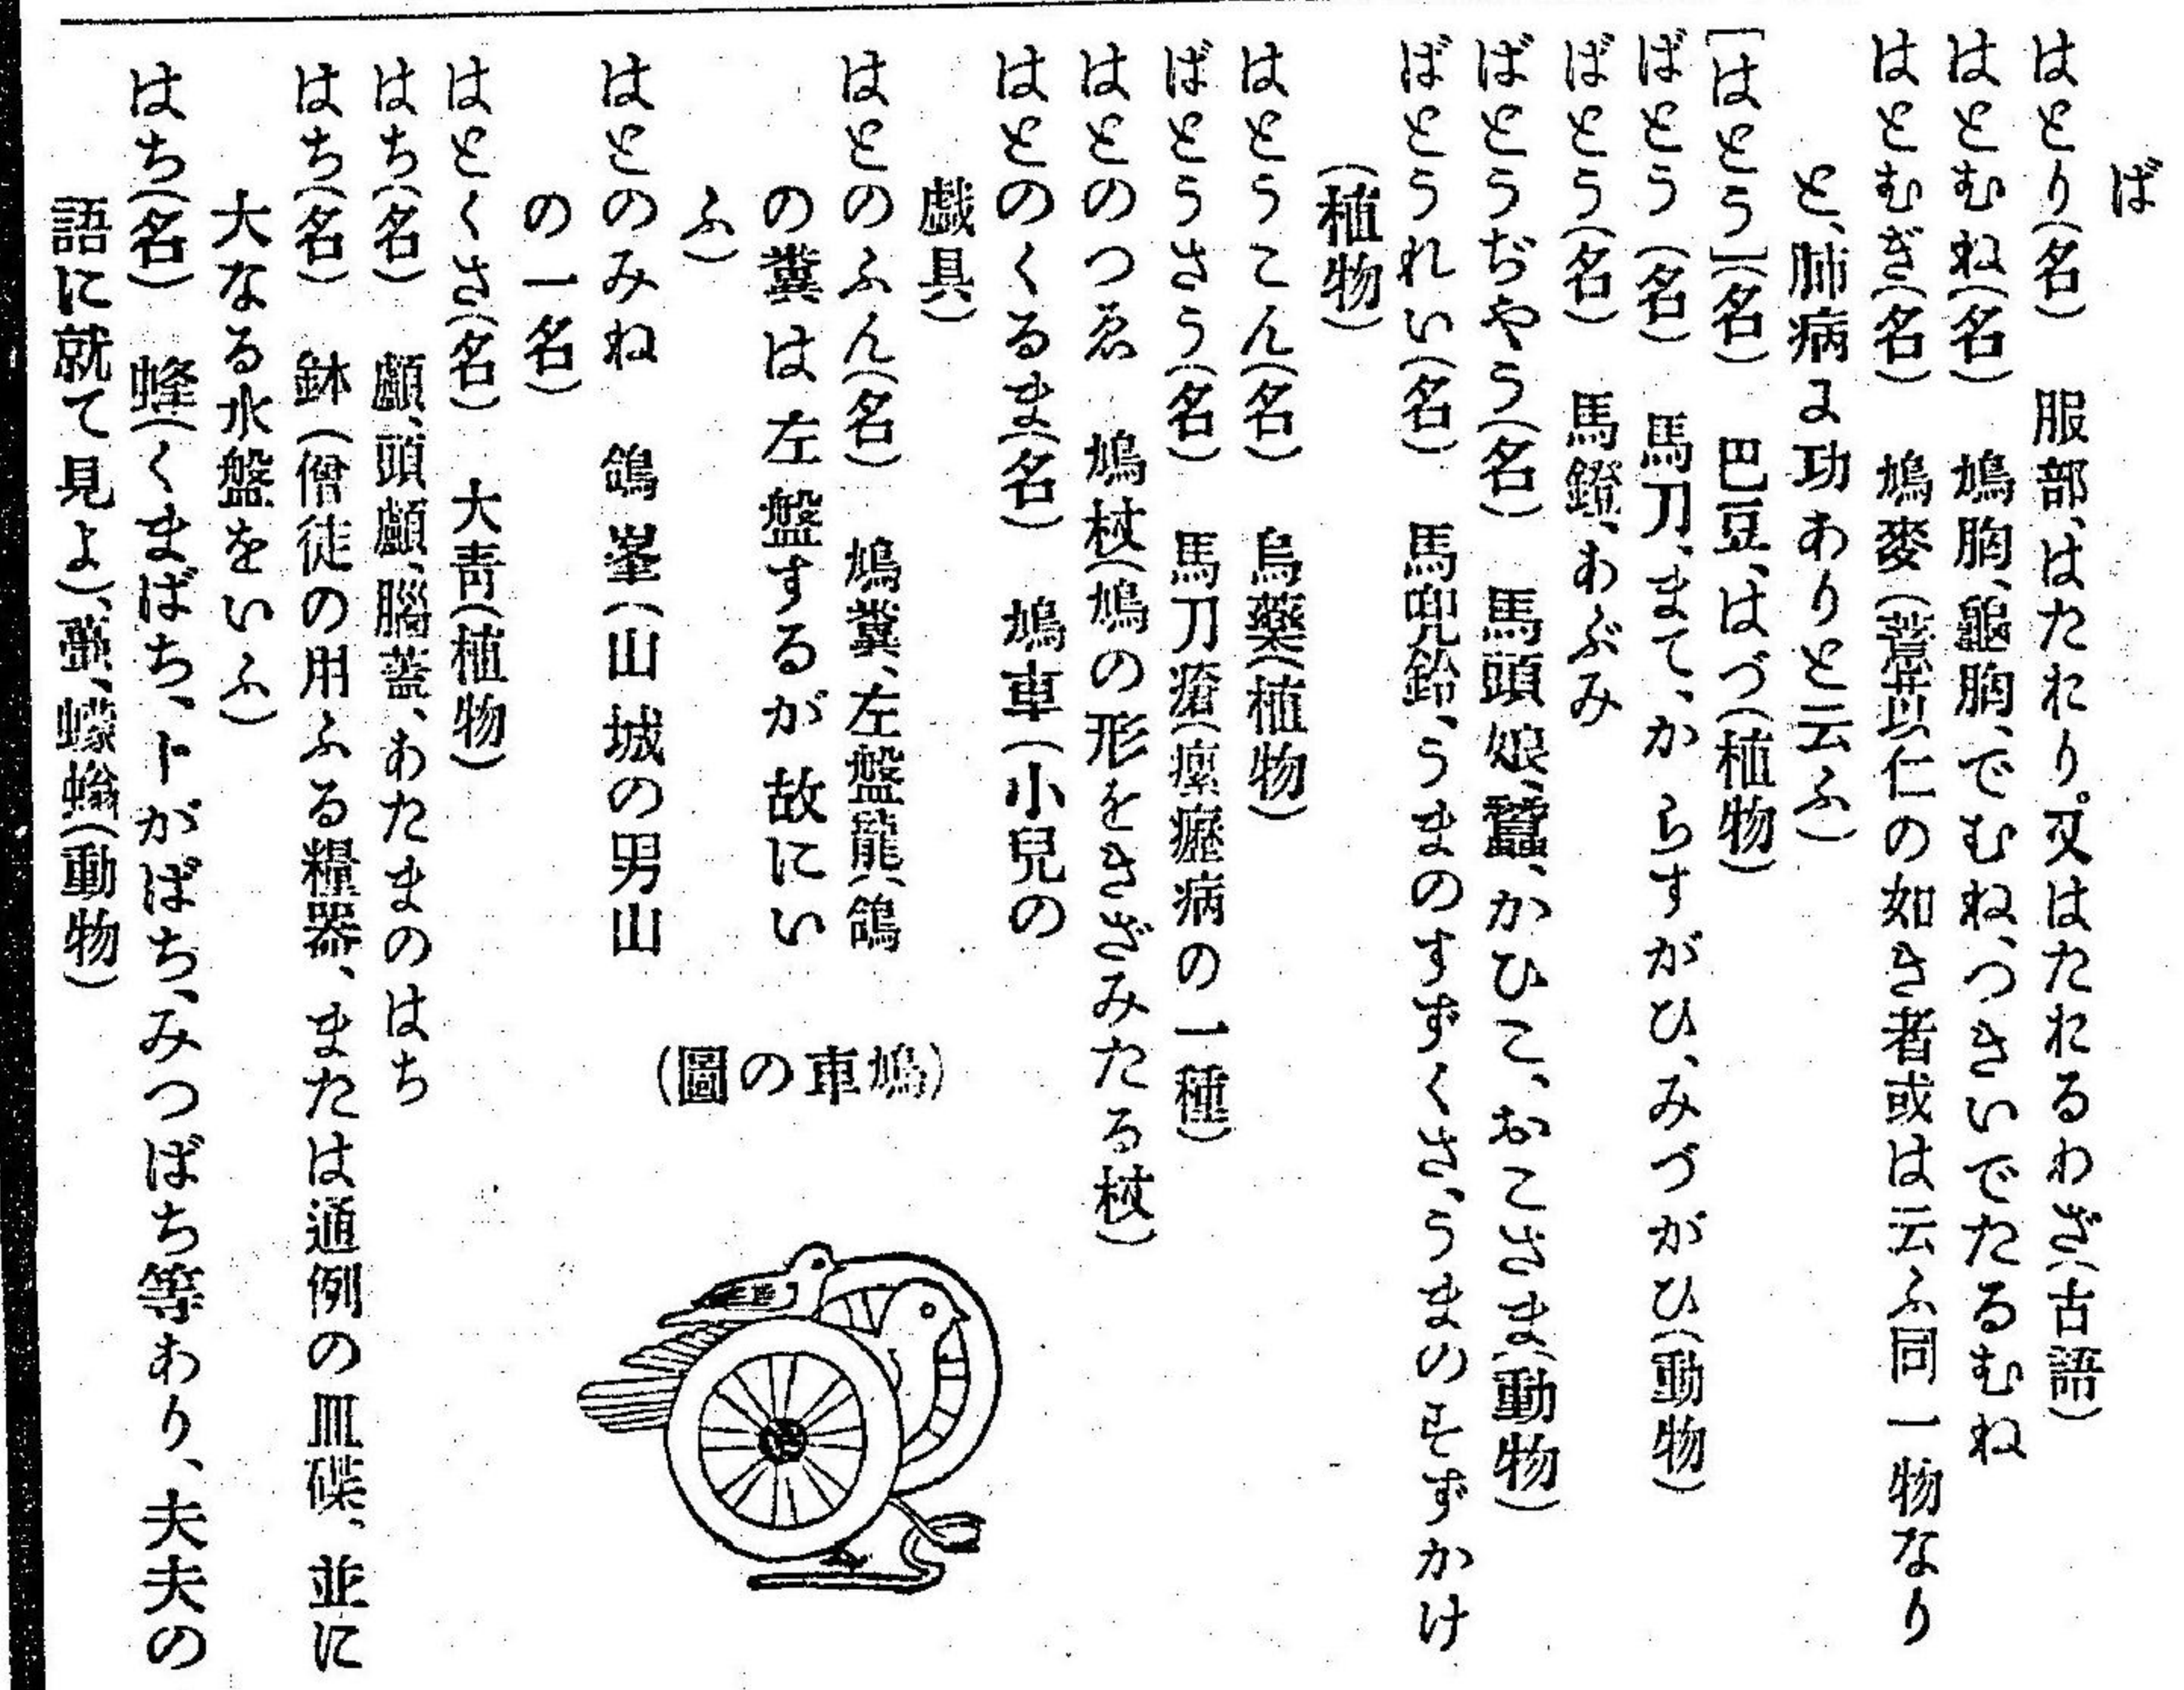 ば
はとり(名) 服部、はたおり。又はたおるわざ(古語)
はとむね(名) 鳩胸、龜胸、でむね、つきいでたるむね
はとむぎ(名) 鳩麥(薏苡仁の如き者或は云ふ同一物なり
と、肺病に功ありと云ふ)
[はとう](名) 巴豆、はづ(植物)
ばとう(名) 馬刀、まて、からすがひ、みづがひ(動物)
ばとう(名) 馬鐙、あぶみ
ばとうぢやう(名) 馬頭娘、蠶、かひこ、おこさま(動物)
ばとうれい(名) 馬兜鈴、うまのすずくさ、うまのすずかけ
(植物)
はとうこん(名) 烏藥(植物)
ばとうさう(名) 馬刀瘡(瘰癧病の一種)
はとのつゑ 鳩杖(鳩の形をきざみたる杖)
はとのくるま(名) 鳩車(小兒の
戯具)
はとのふん(名) 鳩糞、左盤龍(鴿
の糞は左盤するが故にい
ふ)
はとのみね 鴿峯(山城の男山
の一名)
(圖の車鳩)
はとくさ(名) 大靑(植物)
はち(名) 顱、頭顱、腦蓋、あたまのはち
はち(名) 鉢(僧徒の用ふる糧器、または通例の皿碟、並に
大なる水盤をいふ)
はち(名) 蜂(くまばち、トがばち、みつばち等あり、夫夫の
語に就て見よ)、蠮螉(動物)